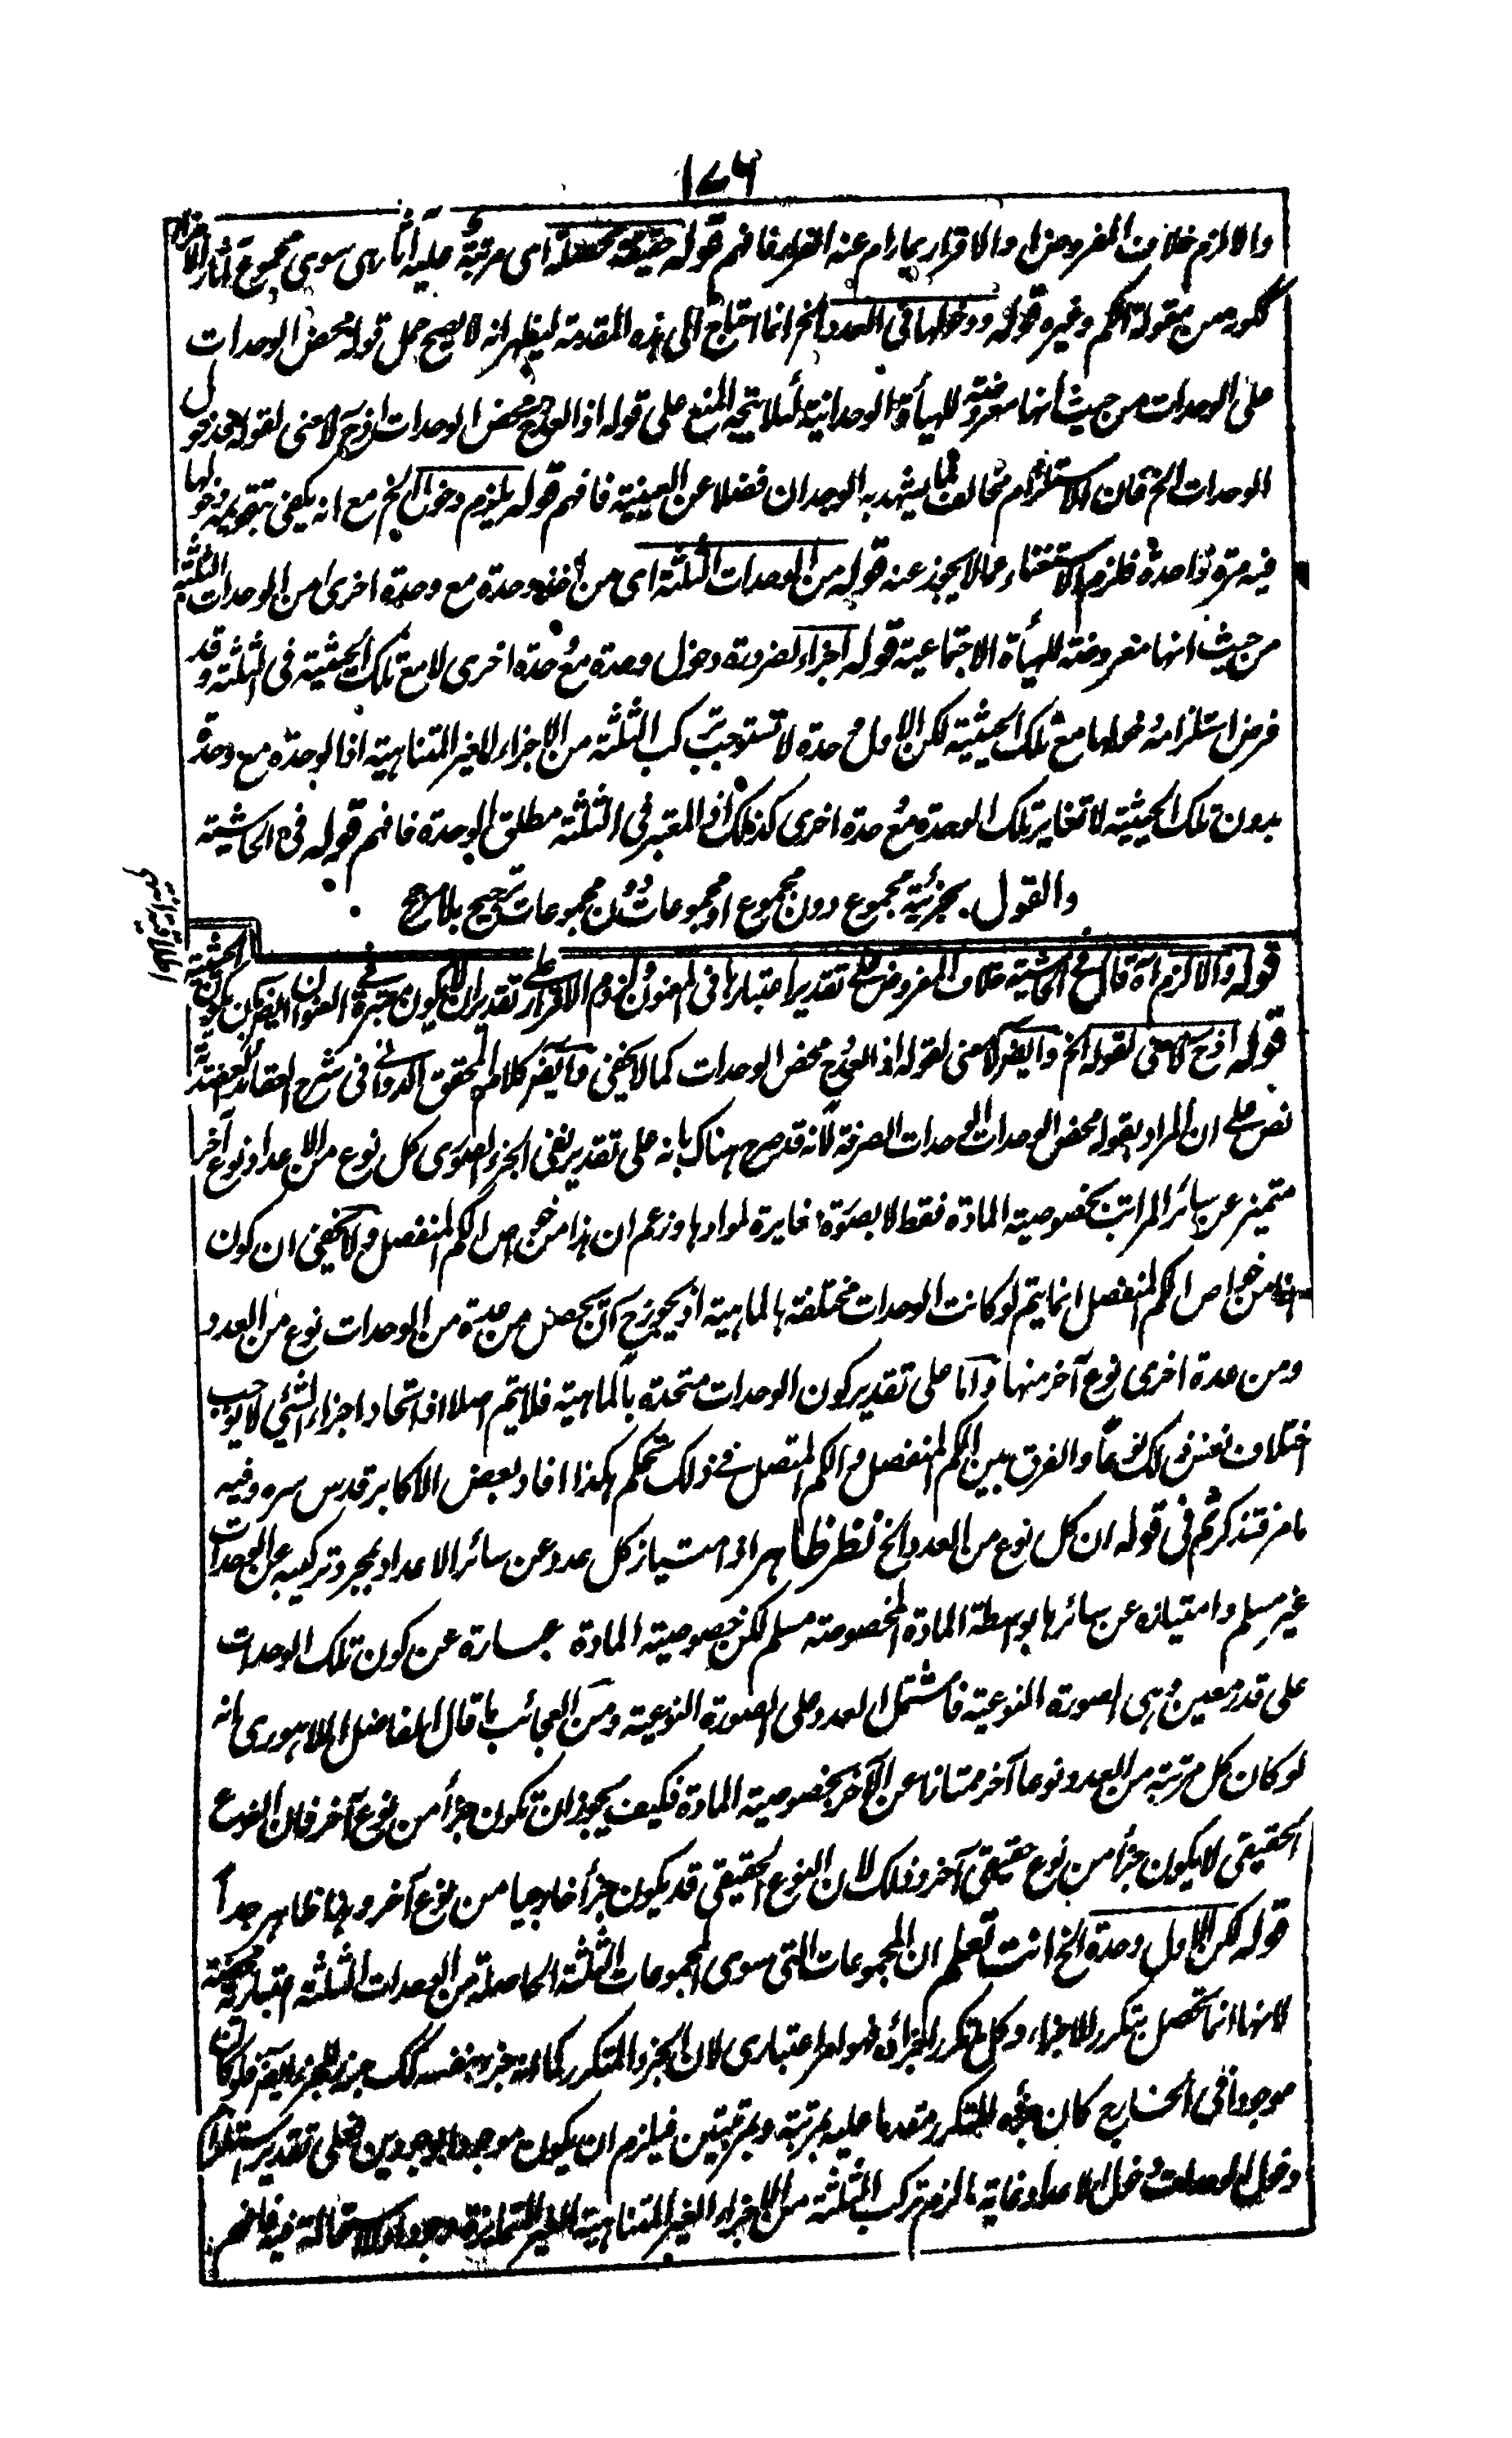 ١٧٦
والا لزم خلاف المفروض او الاقرار بما رام عنه الفرار فافهم قوله حقيقة محصلة اى مرتبة عليه آثار هى سوى مجموع آثار الاجزاء
ككونه من مقولة الكم وغيره قوله ودخولها فى العدد الخ انما احتاج الى هذه المقدمة ليظهر انه لا يصح حمل قوله محض الوحدات
على الوحدات من حيث انها معروضة للهيأة الوحدانية لئلا يتجه المنع على قوله اذ العدد ح محض الوحدات اذ ح لا معنى لقوله فدخول
الوحدات الخ فان الاستلزام مخالف لما يشهد به الوجدان فضلا عن العينية فافهم قوله يلزم دخول الخ مع انه يكفى تقويمه دخولها
فيه مرة واحدة فلزم الاستغناء عما لا يجوز عنه قوله من الوحدات الثلثة اى من اخذ وحدة مع وحدة اخرى من الوحدات الثلثة
من حيث انها معروضة للهيأة الاجتماعية قوله اجزاء لضرورة دخول وحدة مع وحدة اخرى لا مع تلك الحيثية فى الثلثة وقد
فرض استلزامه دخولها مع تلك الحيثية لكن الاول وحدة لا تستوجب تركب الثلثة من الاجزاء الغير المتناهية اذ الوحدة مع وحدة
بدون تلك الحيثية لا تغاير تلك الوحدة مع وحدة اخرى كذلك اذ المعتبر فى الثلثة مطلق الوحدة فافهم قوله فى الحاشية
والقول بجزئية مجموع دون مجموع او مجموعات دون مجموعات ترجيح بلا مرجح
قوله والا لزم آه قال فى الحاشية خلاف المفروض على تقدير اعتبارها فى المعنون ولزوم الاقرار على تقدير ان لا يكون معتبرة فى العنوان ايضا
قوله اذ ح لا معنى لقوله الخ وايضا لا معنى لقوله اذ العدد ح محض الوحدات كما لا يخفى وايضا كلام المحقق الدوانى فى شرح العقائد العضدية
نص على ان المراد بقوله محض الوحدات الوحدات الصرفة لانه قد صرح هناك بانه على تقدير نفى الجزء الصورى كل نوع من الاعداد نوع آخر
متميز عن سائر المراتب بخصوصية المادة فقط لا بصورة مغايرة لموادها وزعم ان هذا من خواص الكم المنفصل ولا يخفى ان كون
هذا من خواص الكم المنفصل انما يتم لو كانت الوحدات مختلفة بالماهية اذ يجوز ح ان يحصل من عدة من الوحدات نوع من العدد
ومن عدة اخرى نوع آخر منها واما على تقدير كون الوحدات متحدة بالماهية فلا يتم اصلا اذ اتحاد اجزاء الشئ لا يوجب
اختلاف نفس ذلك نوعا والفرق بين الكم المنفصل والكم المتصل فى ذلك تحكم هكذا افاد بعض الاكابر قدس سره وفيه
ما مر فتذكر ثم فى قوله ان كل نوع من العدد الخ نظر ظاهر اذ امتياز كل عدد عن سائر الاعداد بمجرد تركيبه عن الوحدات
غير مسلم وامتيازه عن سائرها بواسطة المادة المخصوصة مسلم لكن خصوصية المادة عبارة عن كون تلك الوحدات
على قدر معين وهى الصورة النوعية فاشتمل العدد على الصورة النوعية ومن العجائب ما قال الفاضل اللاهورى انه
لو كان كل مرتبة من العدد نوعا آخر ممتازا عن الآخر بخصوصية المادة فكيف يجوز ان تكون جزأ من نوع آخر فان النوع
الحقيقى لا يكون جزأ من نوع حقيقى آخر وذلك لان النوع الحقيقى قد يكون جزأ خارجيا من نوع آخر وهذا ظاهر جدا
قوله لكن الاول وحدة الخ انت تعلم ان المجموعات التى سوى المجموعات الثلثة الحاصلة من الوحدات الثلثة اعتبارية
لانها انما تحصل بتكرر الاجزاء وكل ما تكرر اجزاؤه فهو امر اعتبارى لان الجزء المتكرر كما انه جزء بنفسه كك جزء للجزء الآخر فلو كان
موجودا فى الخارج كان جزؤه المتكرر متقدما عليه بمرتبة وبمرتبتين فيلزم ان يكون موجودا بوجودين فعلى تقدير استلزام
دخول الوحدات دخول الاعداد غاية ما لزم تركب الثلثة من الاجزاء الغير المتناهية الغير المتمايزة وجودا ولا استحالة فيه فافهم